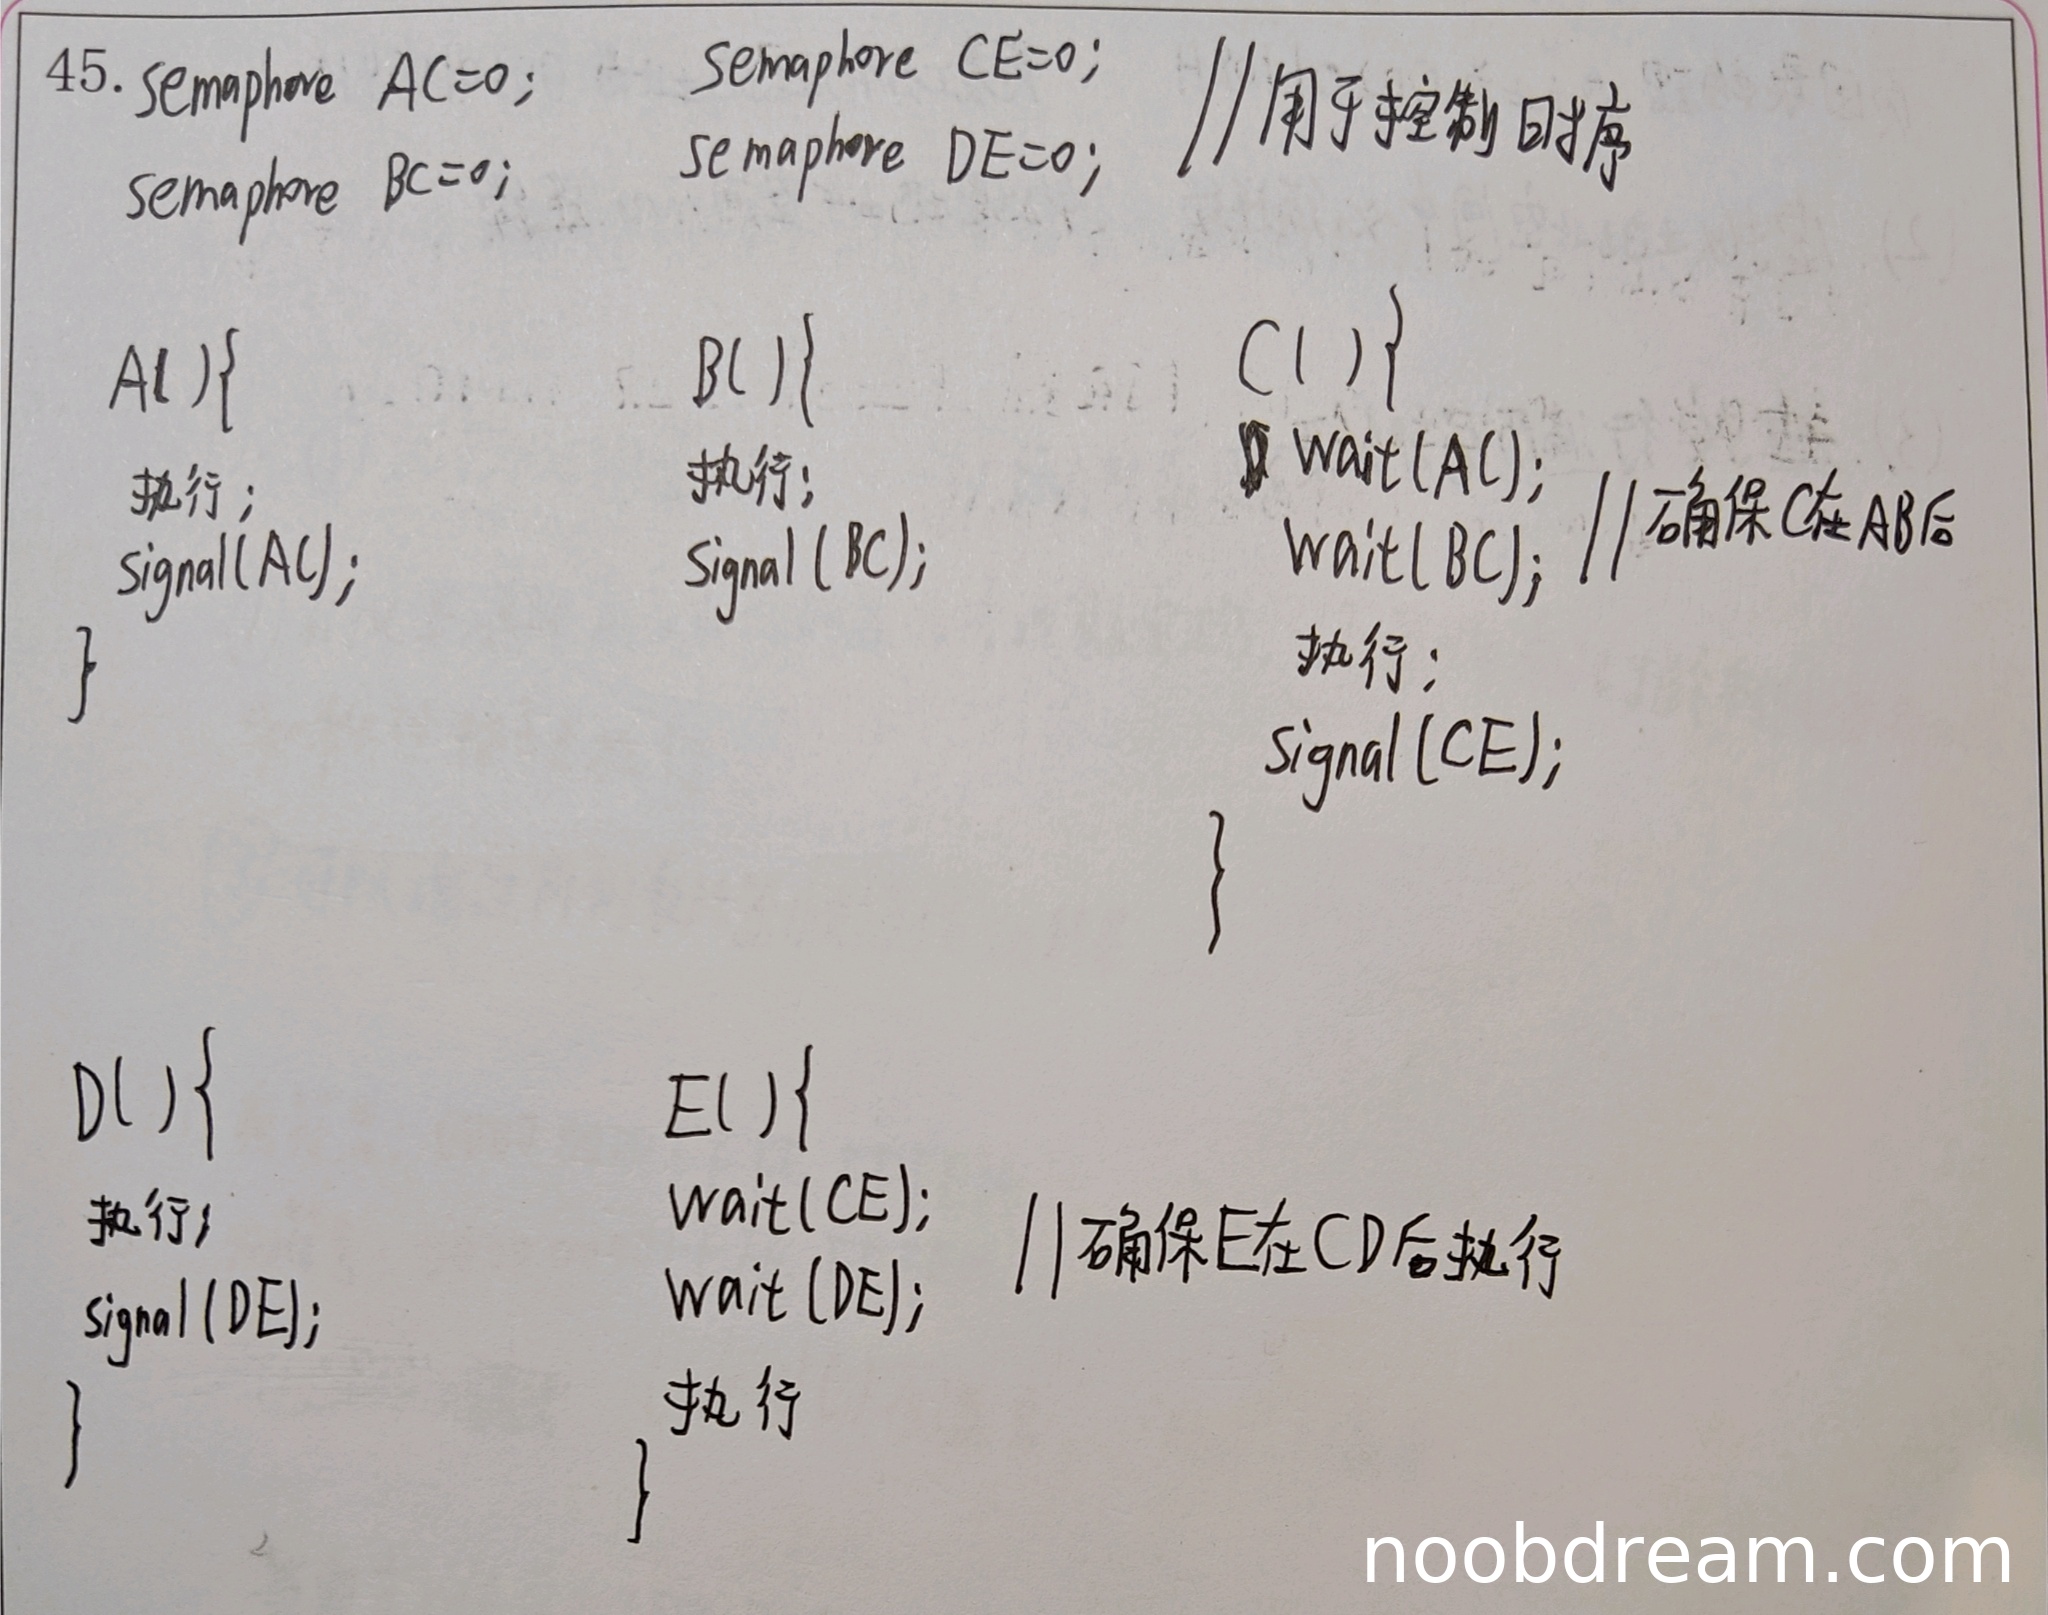 45. semaphore AC=0; semaphore CE=0; //用于控制时序
semaphore BC=0; semaphore DE=0;
A( ){
执行;
signal(AC);
}
B( ){
执行;
signal(BC);
C( ){
wait(AC);
wait(BC); //确保C在AB后
执行;
signal(CE);
}
D( ){
执行;
signal(DE);
}
E( ){
wait(CE);
wait(DE); //确保E在CD后执行
执行
}
noobdream.com